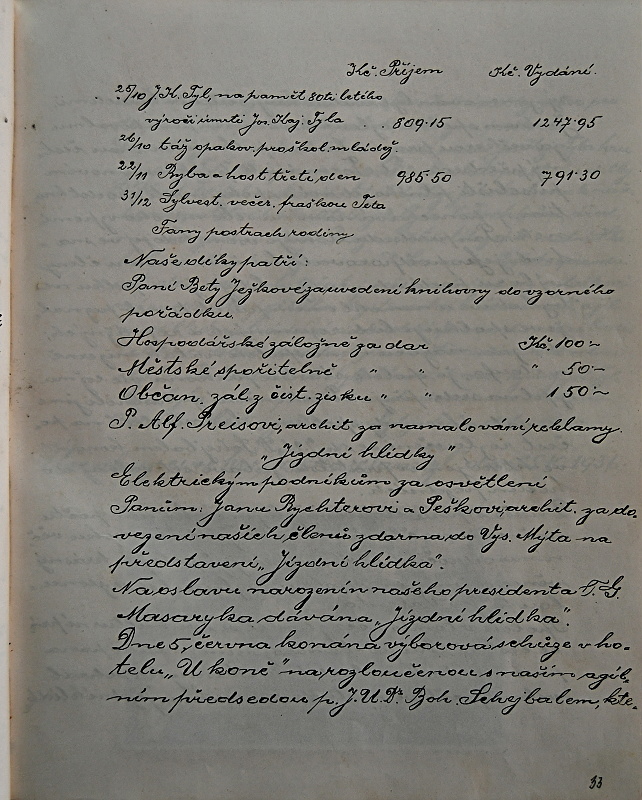 Kč. Příjem Kč. Vydání.
25/10 J.K. Tyl, na paměť 80ti letého
výročí úmrtí Jos. Kaj. Tyla . . 809·15 1247·95
26/10 táž opakov. pro škol. mládež.
22/11 Ryba a host třetí den 985·50 791·30
31/12 Sylvest. večer. fraškou Teta
Fany postrach rodiny
Naše díky patří:
Paní Bety Ježkové za uvedení knihovny do vzorného
pořádku.
Hospodářské záložně za dar Kč. 100·-
Městské spořitelně " " " 50·-
Občan. zál. z čist. zisku " " 150·-
P. Alf. Preisovi, archit. za namalování reklamy.
"Jízdní hlídky"
Elektrickým podnikům za osvětlení
Panům: Janu Rychterovi a Peškovi, archit. za do-
vezení našich členů zdarma do Vys. Mýta na
představení „Jízdní hlídka".
Na oslavu narozenin našeho presidenta T. G.
Masaryka dávána „Jízdní hlídka".
Dne 5. června konána výborová schůze v ho-
telu „U koně" na rozloučenou s naším agil-
ním předsedou p. J.U.Dr. Boh. Schejbalem, kte-
33